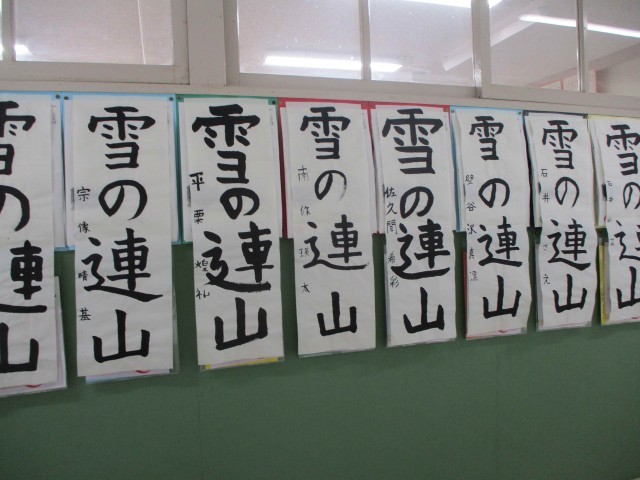 雪の連山
雪の連山
宗像晴基
雪の連山
平栗煌礼
雪の連山
雪の連山
佐久間希彩
雪の連山
雪の連山
石井
雪の連山